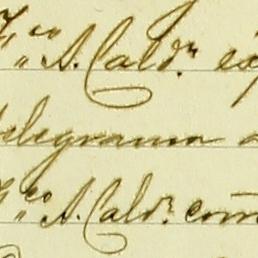 F.co A. Cald.n
telegrama a
F.co A. Cald.n com